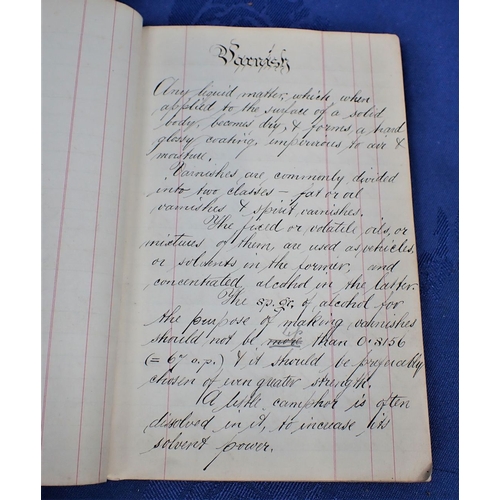 Varnish
Any liquid matter, which when
applied to the surface of a solid
body, becomes dry, & forms a hard
glassy coating, impervious to air &
moisture.
Varnishes are commonly divided
into two classes — fat or oil
varnishes & spirit varnishes.
The fixed or volatile oils, or
mixtures of them, are used as vehicles,
or solvents in the former, and
concentrated alcohol in the latter.
The sp. gr. of alcohol for
the purpose of making varnishes
less
should not be more than 0.8156
(= 67 o.p.) & it should be preferably
chosen of even greater strength.
A little camphor is often
dissolved in it, to increase its
solvent power.